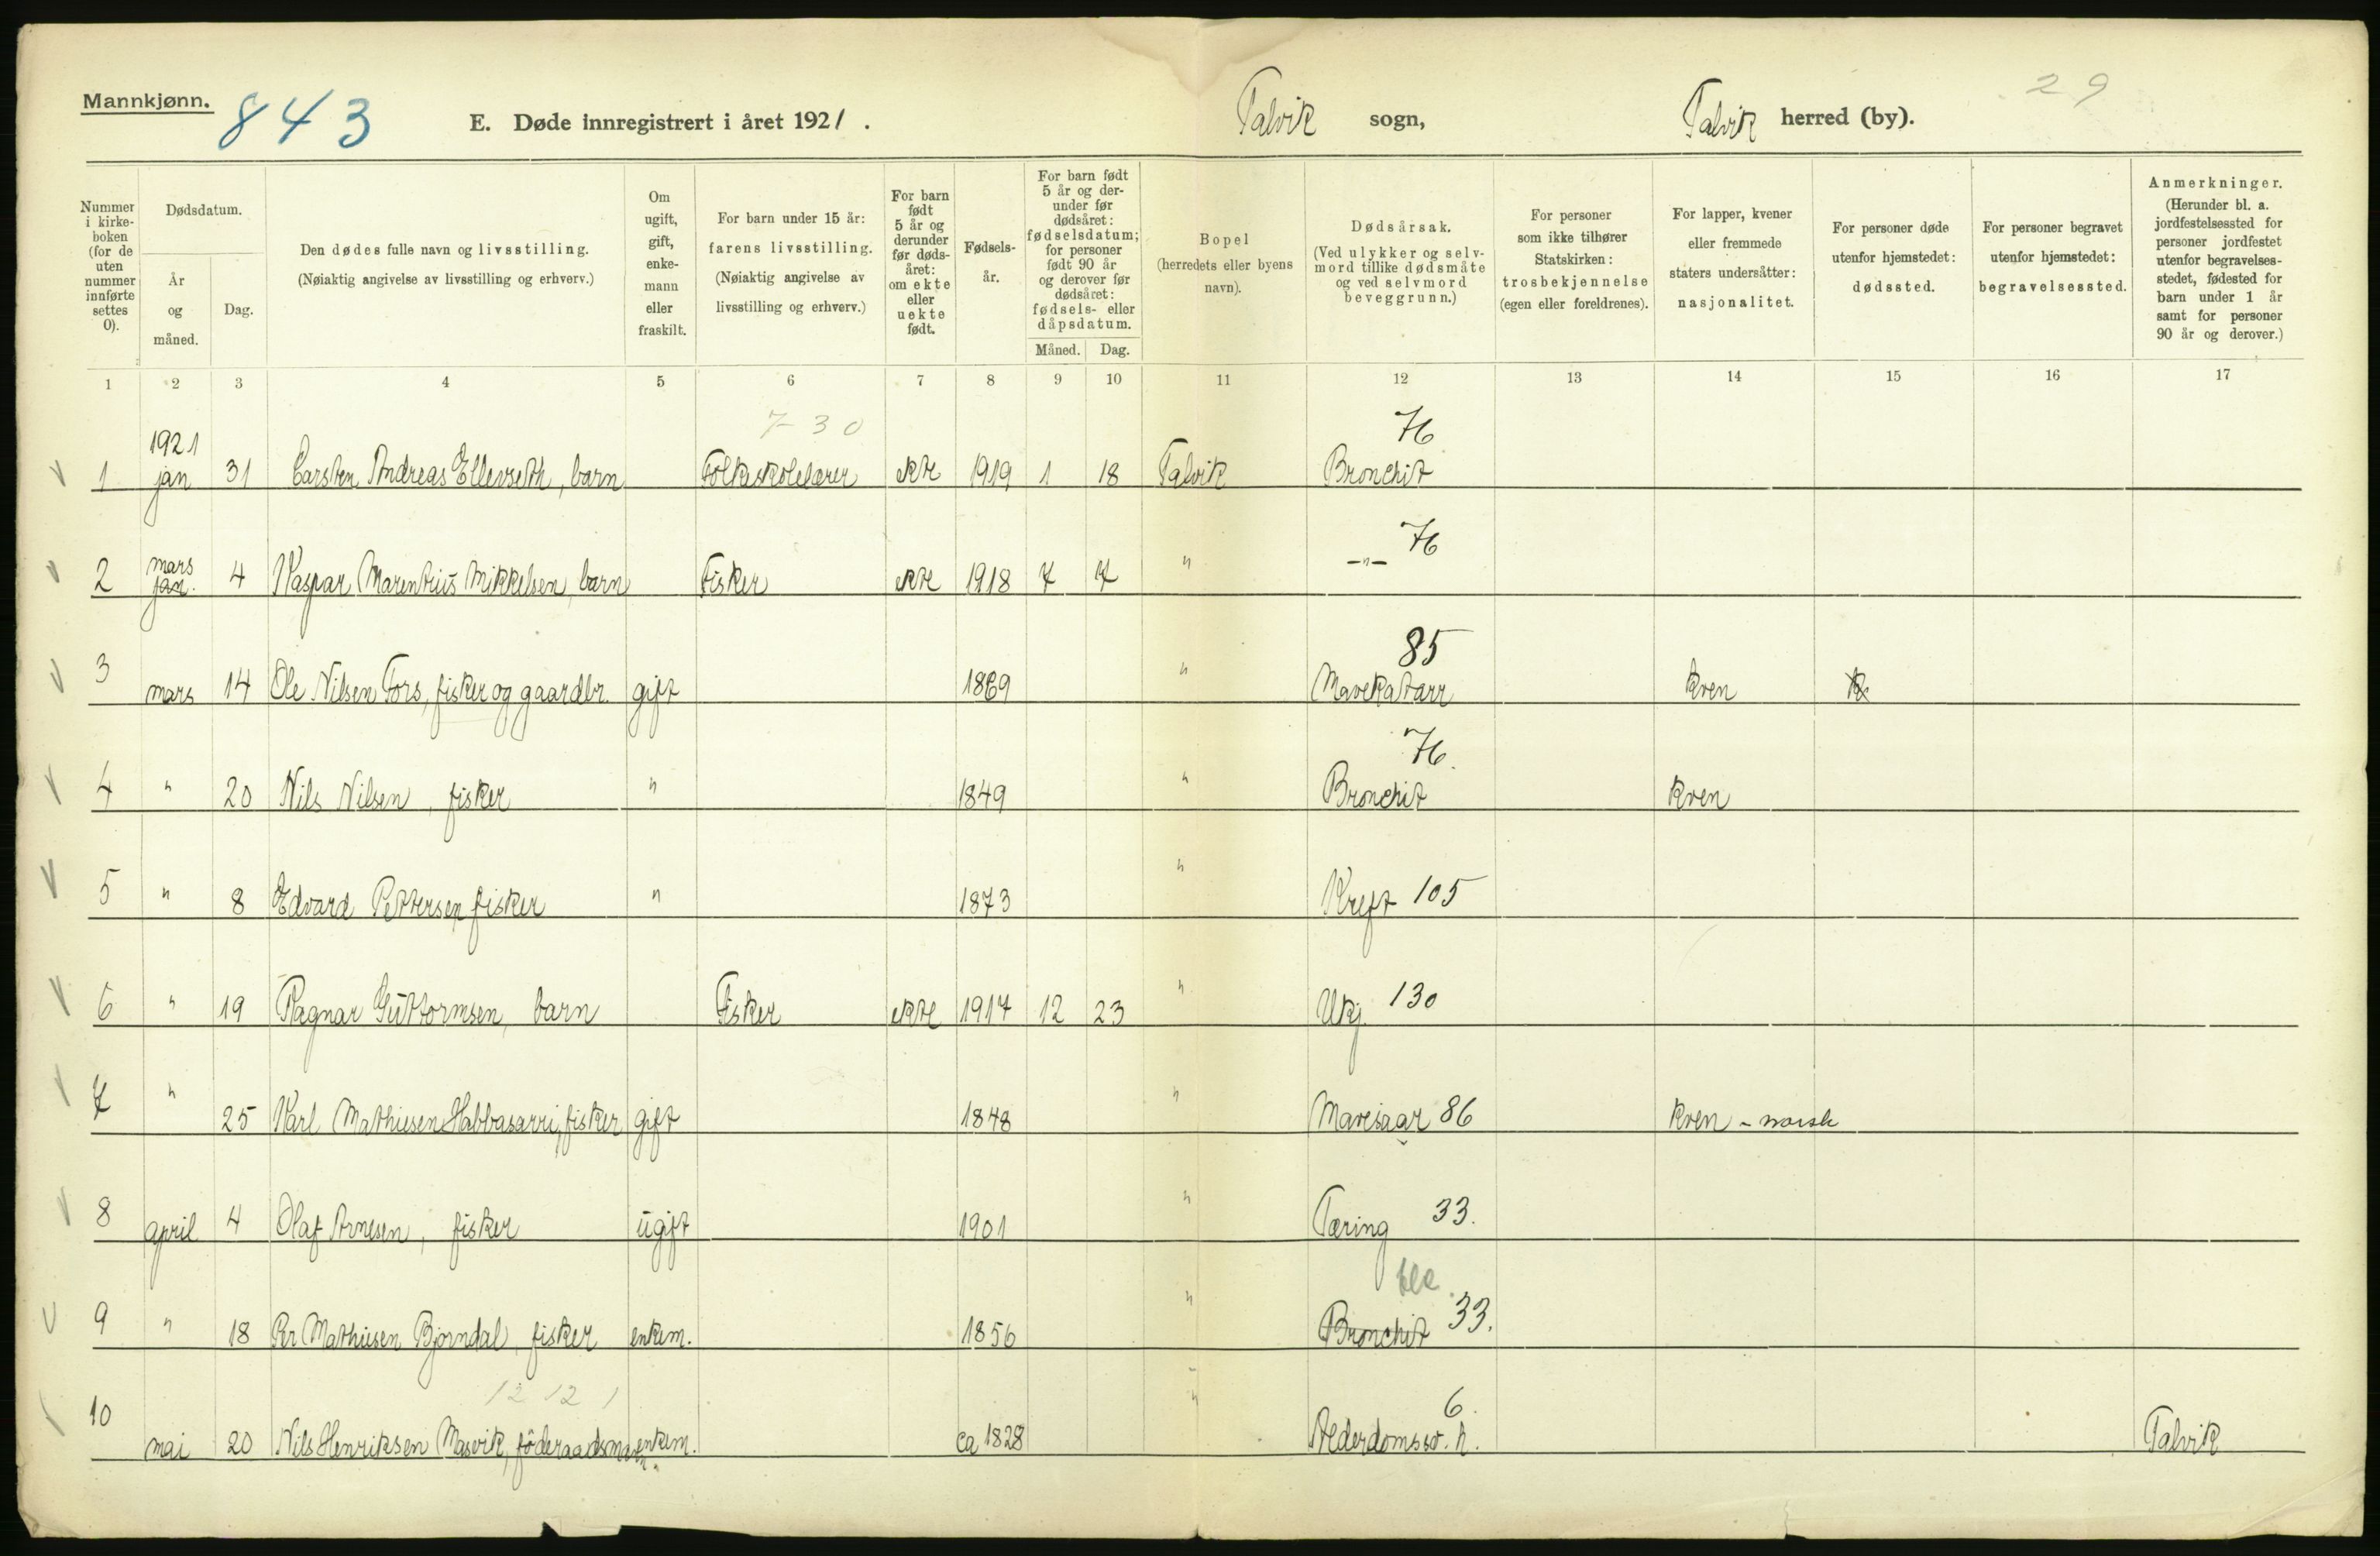 Mannkjønn.
843
E. Døde innregistrert i året 1921.
Talvik sogn,
Talvik herred (by).
29
Nummer i kirke-boken (for de uten nummer innførte settes 0).
Dødsdatum.
År og måned.
Dag.
Den dødes fulle navn og livsstilling.
(Nøiaktig angivelse av livsstilling og erhverv.)
Om ugift, gift, enke-mann eller fraskilt.
For barn under 15 år: farens livsstilling.
(Nøiaktig angivelse av livsstilling og erhverv.)
For barn født 5 år og derunder før døds-året: om ekte eller uekte født.
Fødsels-år.
For barn født 5 år og der-under før dødsåret: fødselsdatum; for personer født 90 år og derover før dødsåret: fødsels- eller dåpsdatum.
Måned. Dag.
Bopel (herredets eller byens navn).
Dødsårsak.
(Ved ulykker og selv-mord tillike dødsmåte og ved selvmord beveggrunn.)
For personer som ikke tilhører Statskirken: trosbekjennelse (egen eller foreldrenes).
For lapper, kvener eller fremmede staters undersåtter: nasjonalitet.
For personer døde utenfor hjemstedet: dødssted.
For personer begravet utenfor hjemstedet: begravelsessted.
Anmerkninger.
(Herunder bl. a. jordfestelsessted for personer jordfestet utenfor begravelses-stedet, fødested for barn under 1 år samt for personer 90 år og derover.)
1 2 3 4 5 6 7 8 9 10 11 12 13 14 15 16 17
7-30 76
1 1921 jan 31 Carsten Andreas Ellevseth, barn Folkeskolelærer ekte 1919 1 18 Talvik Bronchit
76
2 mars jan. 4 Kaspar Marentius Mikkelsen, barn Fisker ekte 1918 7 7 " -"-
85
3 mars 14 Ole Nilsen Fors, fisker og gaardbr. gift 1869 " Mavekatarr kven
76.
4 " 20 Nils Nilsen, fisker " 1849 " Bronchit kven
5 " 8 Edvard Pettersen, fisker " 1873 " Kreft 105
6 " 19 Ragnar Guttormsen, barn Fisker ekte 1917 12 23 " Ukj. 130
7 " 25 Karl Mathisen Habbasarri, fisker gift 1848 " Mavesaar 86 kven - norsk
8 april 4 Olaf Arnesen, fisker ugift 1901 " Tæring 33.
9 " 18 Per Mathisen Bjørndal, fisker enkem. 1856 " Bronchit 33.
12 12 1 6.
10 mai 20 Nils Henriksen Masvik, föderaadsmann enkem. ca 1828 " Alderdomssv. h. Talvik